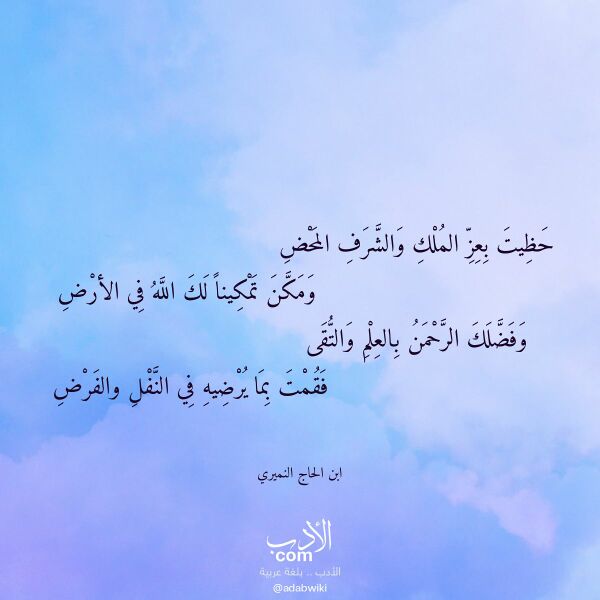 حَظِيتَ بِعِزِّ المُلْكِ وَالشَّرَفِ المَحْضِ
وَمَكَّنَ تَمْكِيناً لَكَ اللَّهُ فِي الأرْضِ
وَفَضَّلَكَ الرَّحْمَنُ بِالعِلْمِ وَالتُّقَى
فَقُمْتَ بِمَا يُرْضِيهِ فِي النَّفْلِ والفَرْضِ
ابن الحاج النميري
الأدب
com
الأدب .. بلغة عربية
@adabwiki